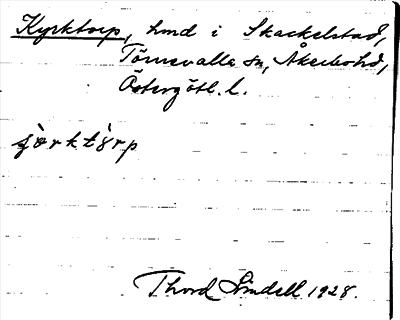 Kyrktorp, hmd i Skackelstad,
Törnevalla sn, Åkerbohd,
Östergötl. l.
Thord Lindell 1928.